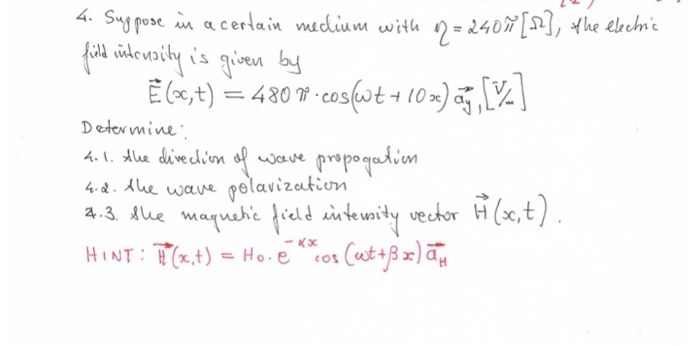 4. Suppose in a certain medium with η = 240π [Ω], the electric
field intensity is given by
E⃗(x,t) = 480π·cos(ωt + 10x) a⃗y, [V/m]
Determine:
4.1. the direction of wave propogation
4.2. the wave polarization
4.3. the magnetic field intensity vector H⃗(x,t).
HINT: H⃗(x,t) = H₀·e^-αx cos(ωt+βx) a⃗H